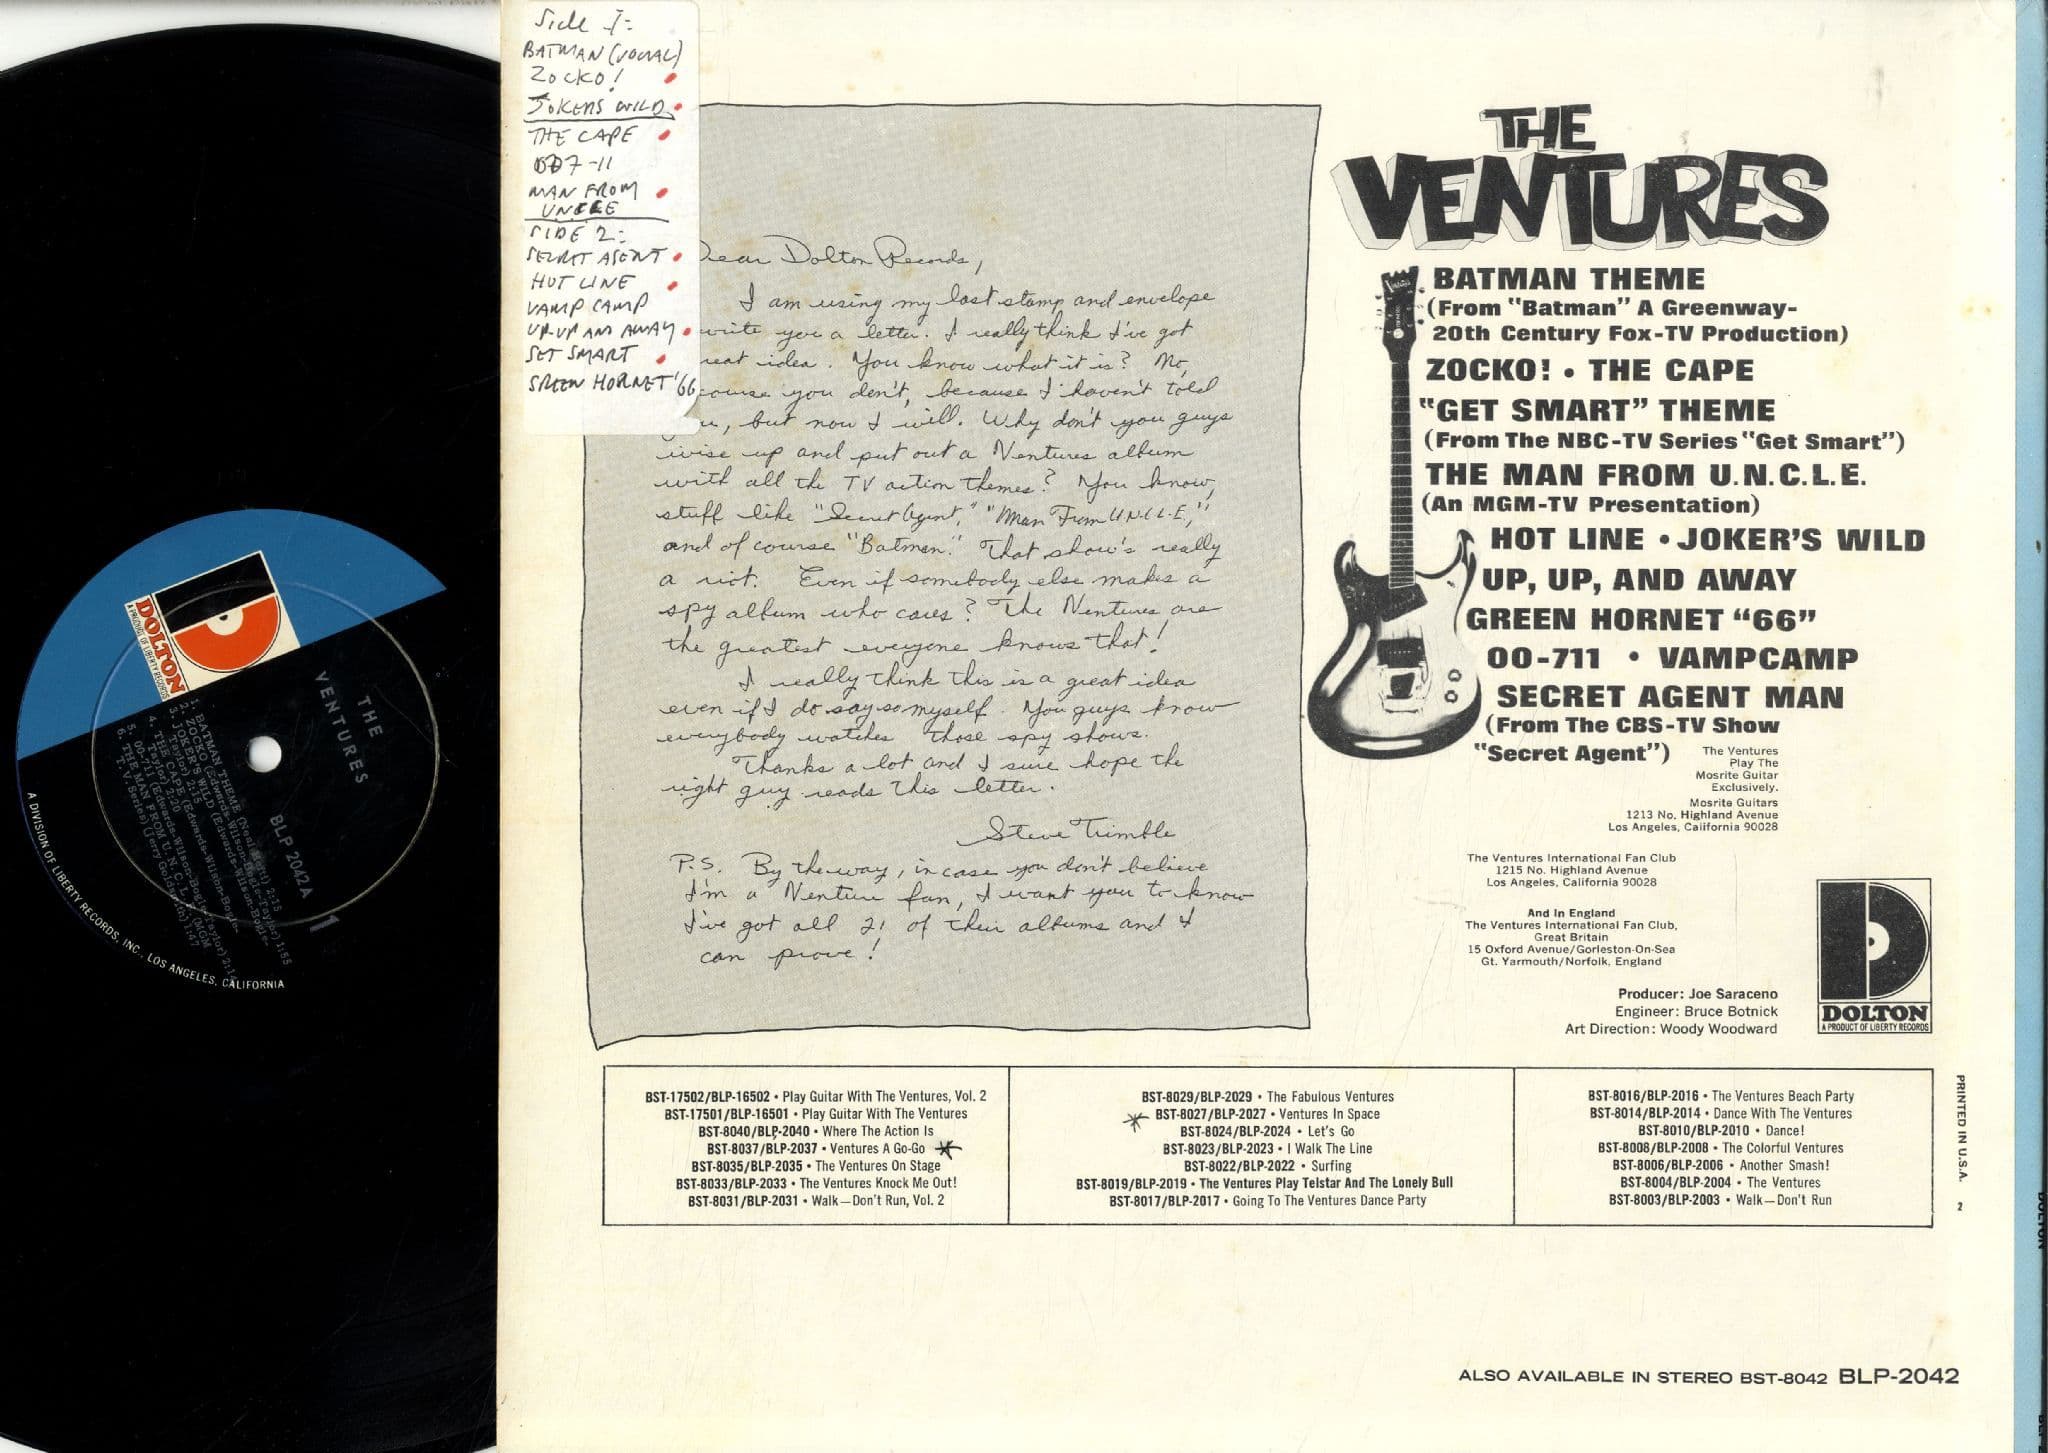 Side I:
BATMAN (VOCAL)
ZOCKO!
JOKERS WILD
THE CAPE
007-11
MAN FROM
UNCLE
SIDE 2:
SECRET AGENT
HOT LINE
VAMP CAMP
UP-UP AND AWAY
GET SMART
GREEN HORNET '66
Dear Dolton Records,
I am using my last stamp and envelope
write you a letter. I really think I've got
reat idea. You know what it is? No,
course you don't, because I haven't told
, but now I will. Why don't you guys
wise up and put out a Ventures album
with all the TV action themes? You know,
stuff like "Secret Agent," "Man From U.N.C.L.E.,"
and of course "Batman." That show's really
a riot. Even if somebody else makes a
spy album who cares? The Ventures are
the greatest everyone knows that!
I really think this is a great idea
even if I do say so myself. You guys know
everybody watches those spy shows.
Thanks a lot and I sure hope the
right guy reads this letter.
Steve Trimble
P.S. By the way, in case you don't believe
I'm a Venture fan, I want you to know
I've got all 21 of their albums and I
can prove!
THE
VENTURES
BATMAN THEME
(From "Batman" A Greenway-
20th Century Fox-TV Production)
ZOCKO! • THE CAPE
"GET SMART" THEME
(From The NBC-TV Series "Get Smart")
THE MAN FROM U.N.C.L.E.
(An MGM-TV Presentation)
HOT LINE • JOKER'S WILD
UP, UP, AND AWAY
GREEN HORNET "66"
00-711 • VAMPCAMP
SECRET AGENT MAN
(From The CBS-TV Show
"Secret Agent")
The Ventures
Play The
Mosrite Guitar
Exclusively.
Mosrite Guitars
1213 No. Highland Avenue
Los Angeles, California 90028
The Ventures International Fan Club
1215 No. Highland Avenue
Los Angeles, California 90028
And In England
The Ventures International Fan Club,
Great Britain
15 Oxford Avenue/Gorleston-On-Sea
Gt. Yarmouth/Norfolk, England
Producer: Joe Saraceno
Engineer: Bruce Botnick
Art Direction: Woody Woodward
DOLTON
A PRODUCT OF LIBERTY RECORDS
BST-17502/BLP-16502 • Play Guitar With The Ventures, Vol. 2
BST-17501/BLP-16501 • Play Guitar With The Ventures
BST-8040/BLP-2040 • Where The Action Is
BST-8037/BLP-2037 • Ventures A Go-Go
BST-8035/BLP-2035 • The Ventures On Stage
BST-8033/BLP-2033 • The Ventures Knock Me Out!
BST-8031/BLP-2031 • Walk—Don't Run, Vol. 2
BST-8029/BLP-2029 • The Fabulous Ventures
BST-8027/BLP-2027 • Ventures In Space
BST-8024/BLP-2024 • Let's Go
BST-8023/BLP-2023 • I Walk The Line
BST-8022/BLP-2022 • Surfing
BST-8019/BLP-2019 • The Ventures Play Telstar And The Lonely Bull
BST-8017/BLP-2017 • Going To The Ventures Dance Party
BST-8016/BLP-2016 • The Ventures Beach Party
BST-8014/BLP-2014 • Dance With The Ventures
BST-8010/BLP-2010 • Dance!
BST-8008/BLP-2008 • The Colorful Ventures
BST-8006/BLP-2006 • Another Smash!
BST-8004/BLP-2004 • The Ventures
BST-8003/BLP-2003 • Walk—Don't Run
PRINTED IN U.S.A. 2
ALSO AVAILABLE IN STEREO BST-8042 BLP-2042
DOLTON
DOLTON
A PRODUCT OF LIBERTY RECORDS
THE
VENTURES
BLP 2042A
1
1. BATMAN THEME (Neal Hefti) 2:15
2. ZOCKO (Edwards-Wilson-Bogle-Taylor) 1:55
3. JOKER'S WILD (Edwards-Wilson-Bogle-
Taylor) 2:15
4. THE CAPE (Edwards-Wilson-Bogle-
Taylor) 2:20
5. 00-711 (Edwards-Wilson-Bogle-Taylor) 2:14
6. THE MAN FROM U.N.C.L.E. (MGM
T.V. Series) (Jerry Goldsmith) 1:47
A DIVISION OF LIBERTY RECORDS, INC., LOS ANGELES, CALIFORNIA